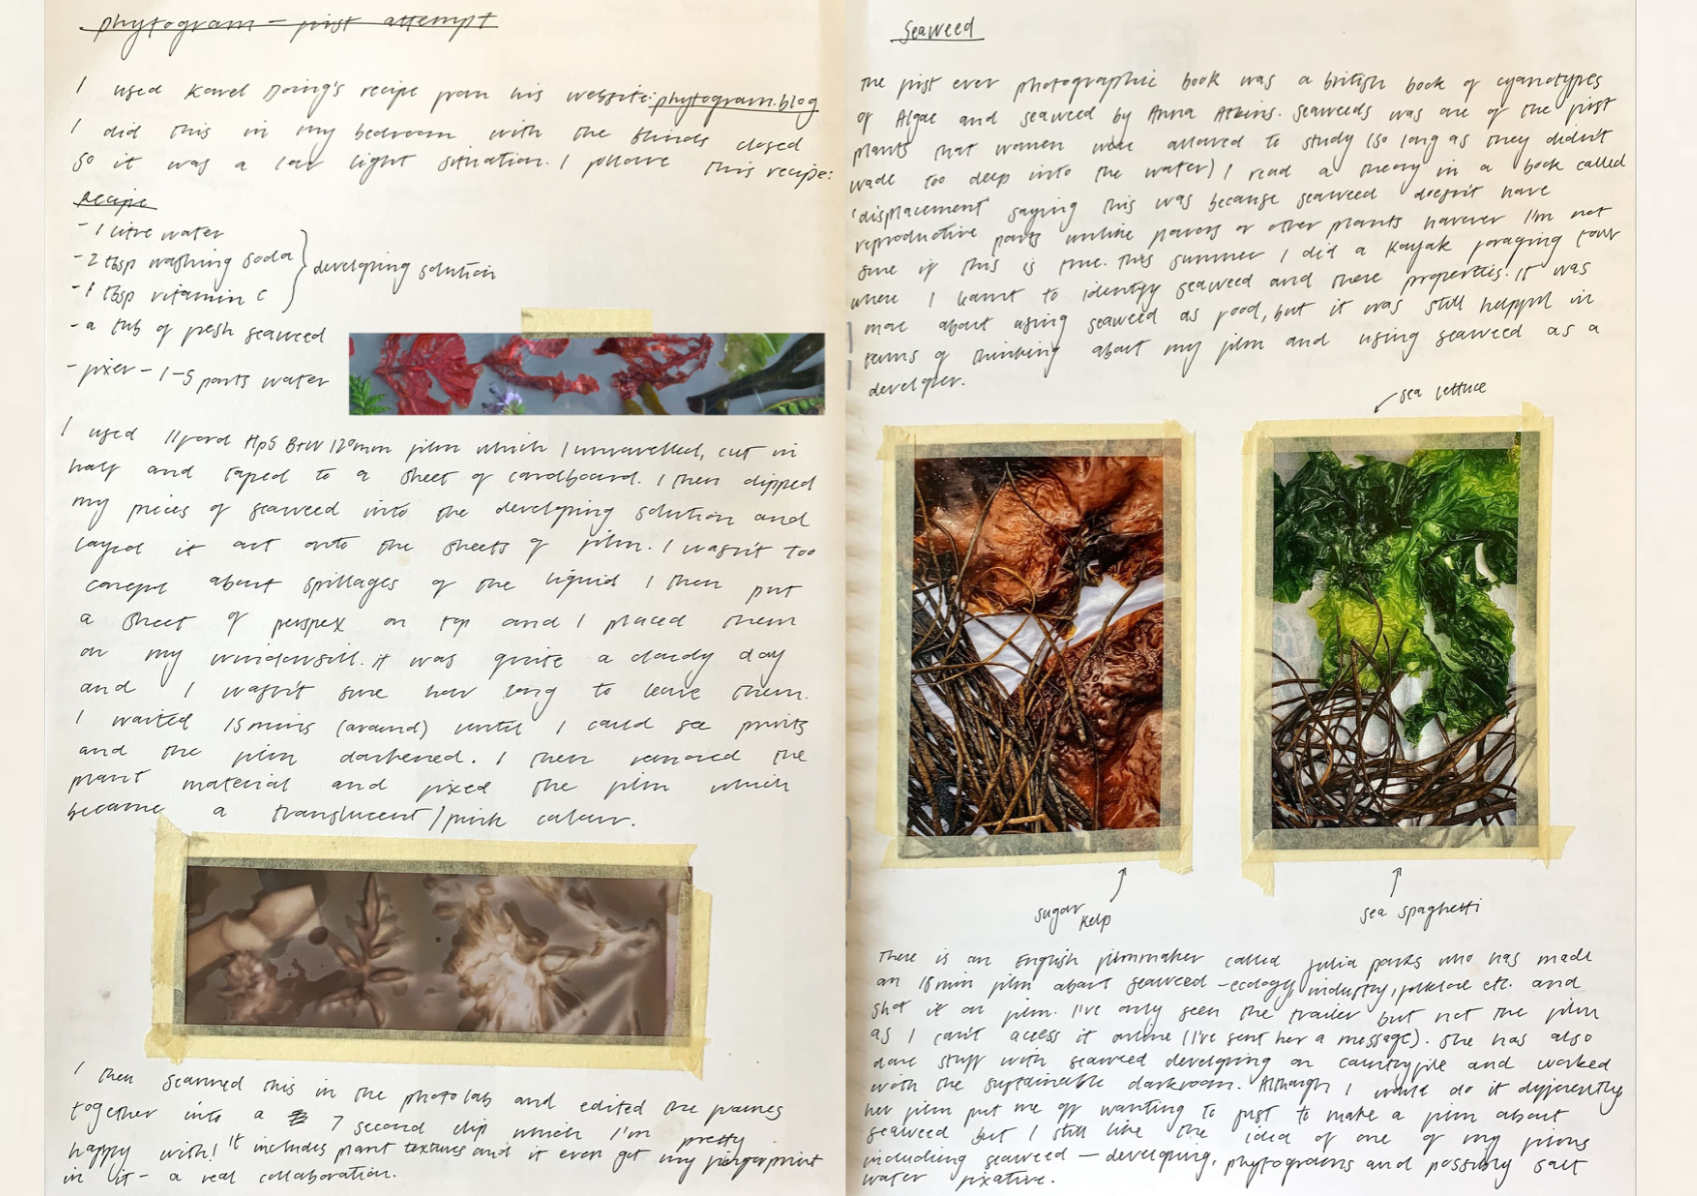 phytogram - first attempt
I used Karel Doing's recipe from his website: phytogram.blog
I did this in my bedroom with the blinds closed
so it was a low light situation. I follow this recipe:
Recipe
- 1 litre water
- 2 tbsp washing soda
- 1 tbsp vitamin c
developing solution
- a tub of fresh seaweed
- fixer - 1-5 parts water
I used Ilford Hp5 B+W 120mm film which I unravelled, cut in
half and taped to a sheet of cardboard. I then dipped
my pieces of seaweed into the developing solution and
layed it out onto the sheets of film. I wasn't too
careful about spillages of the liquid I then put
a sheet of perspex on top and I placed them
on my windowsill. it was quite a cloudy day
and I wasn't sure how long to leave them.
I waited 15 mins (around) until I could see prints
and the film darkened. I then removed the
plant material and fixed the film which
became a translucent/pink colour.
I then scanned this in the photo lab and edited the frames
together into a 7 second clip which I'm pretty
happy with! It includes plant textures and it even got my fingerprint
in it - a real collaboration.
Seaweed
The first ever photographic book was a british book of cyanotypes
of Algae and seaweed by Anna Atkins. Seaweeds was one of the first
plants that women were allowed to study (so long as they didn't
wade too deep into the water) I read a theory in a book called
'displacement' saying this was because seaweed doesn't have
reproductive parts unlike flowers or other plants however I'm not
sure if this is true. This summer I did a kayak foraging tour
where I learnt to identify seaweed and there properties. It was
more about using seaweed as food, but it was still helpful in
terms of thinking about my film and using seaweed as a
developer.
sea lettuce
sugar kelp
sea spaghetti
There is an English filmmaker called Julia parks who has made
an 18 min film about seaweed - ecology, industry, folklore etc. and
shot it on film. I've only seen the trailer but not the film
as I can't access it online (I've sent her a message). She has also
done stuff with seaweed developing on countryfile and worked
with the sustainable darkroom. Although I would do it differently
her film put me off wanting to just to make a film about
seaweed but I still like the idea of one of my films
including seaweed - developing, phytograms and possibly salt
water fixative.